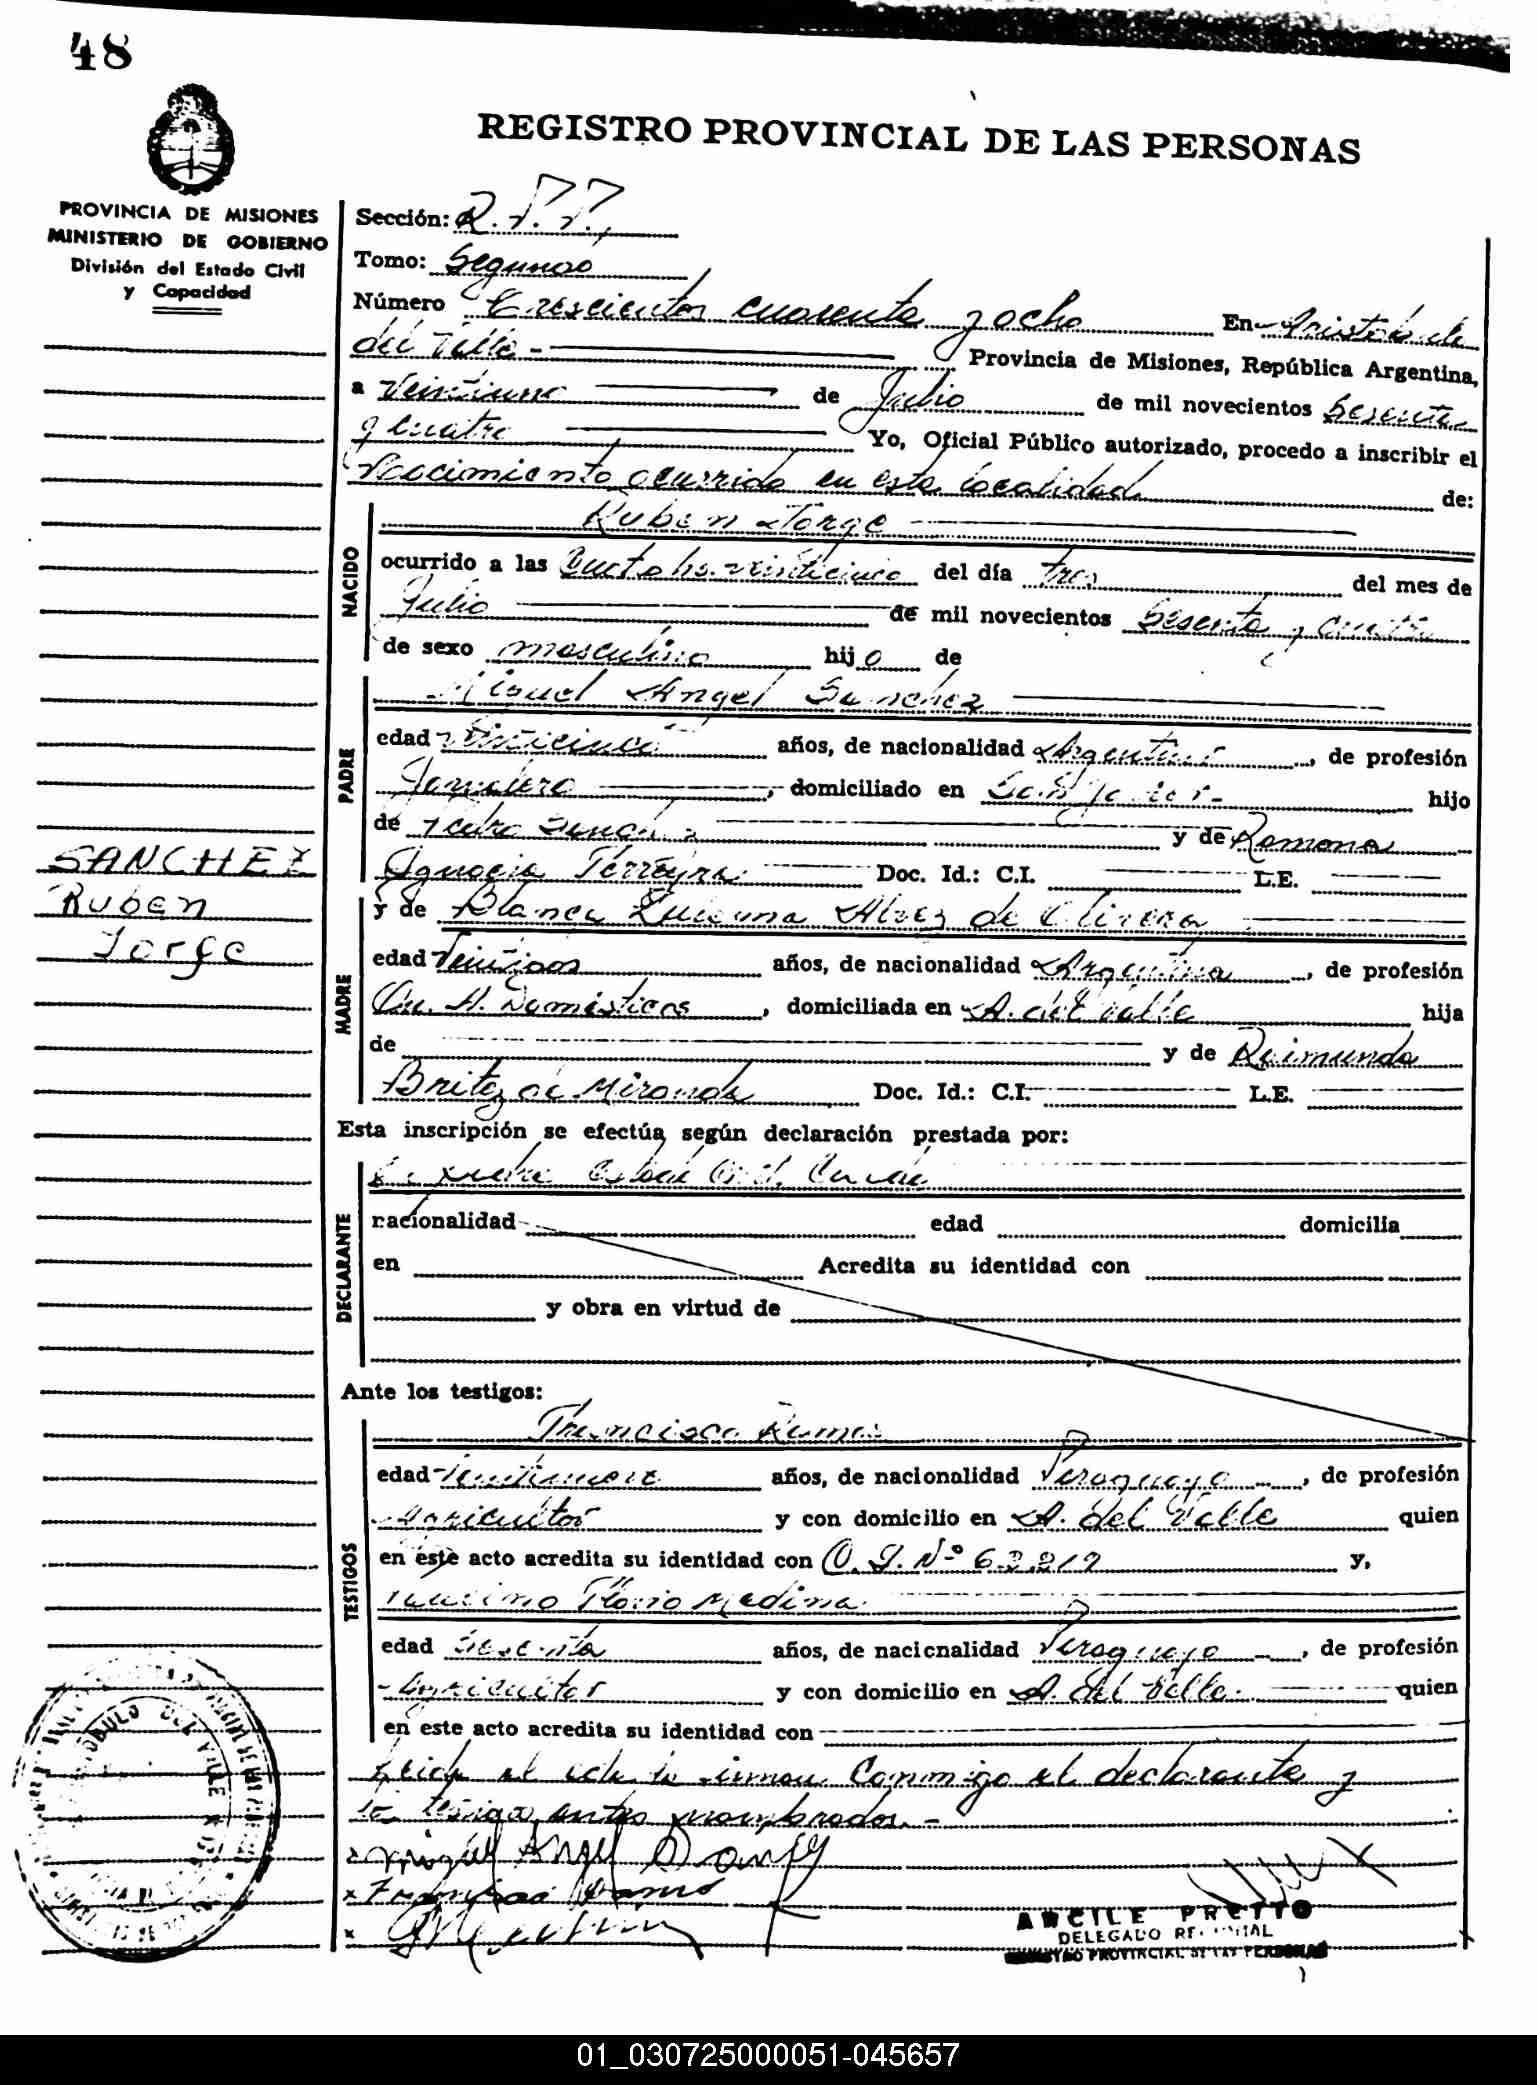 48
REGISTRO PROVINCIAL DE LAS PERSONAS
PROVINCIA DE MISIONES
MINISTERIO DE GOBIERNO
División del Estado Civil
y Capacidad
Sección:
Tomo: Segundo
Número Trescientos cuarenta y ocho En Aristobulo
del Valle - Provincia de Misiones, República Argentina,
a Veintiuno de Julio de mil novecientos Sesenta
y cuatro Yo, Oficial Público autorizado, procedo a inscribir el
Nacimiento ocurrido en esta localidad de:
NACIDO
Ruben Jorge
ocurrido a las hs. veinticinco del día tres del mes de
Julio de mil novecientos Sesenta y cuatro
de sexo masculino hijo de
PADRE
Miguel Angel Sanchez
edad Veinticinco años, de nacionalidad Argentina, de profesión
Jornalero, domiciliado en San Javier - hijo
de Pedro Sanchez y de Ramona
Ignacia Ferreyra Doc. Id.: C.I. L.E.
SANCHEZ
Ruben
Jorge
MADRE
y de Blanca Alvez de Olivera
edad Veintidos años, de nacionalidad Argentina, de profesión
Domésticos, domiciliada en A. del Valle hija
de y de Raimunda
Britez de Miranda Doc. Id.: C.I. L.E.
Esta inscripción se efectúa según declaración prestada por:
DECLARANTE
padre
nacionalidad edad domicilia
en Acredita su identidad con
y obra en virtud de
Ante los testigos:
TESTIGOS
Francisco
edad años, de nacionalidad Paraguaya, de profesión
Agricultor y con domicilio en A. del Valle quien
en este acto acredita su identidad con Nº y,
Medina
edad Sesenta años, de nacionalidad Paraguaya, de profesión
Agricultor y con domicilio en A. del Valle quien
en este acto acredita su identidad con
Leida el acta la firman conmigo el declarante y
testigos antes nombrados. -
Miguel Angel
ARCILE PRETTO
DELEGADO
REGISTRO PROVINCIAL DE LAS PERSONAS
01_030725000051-045657